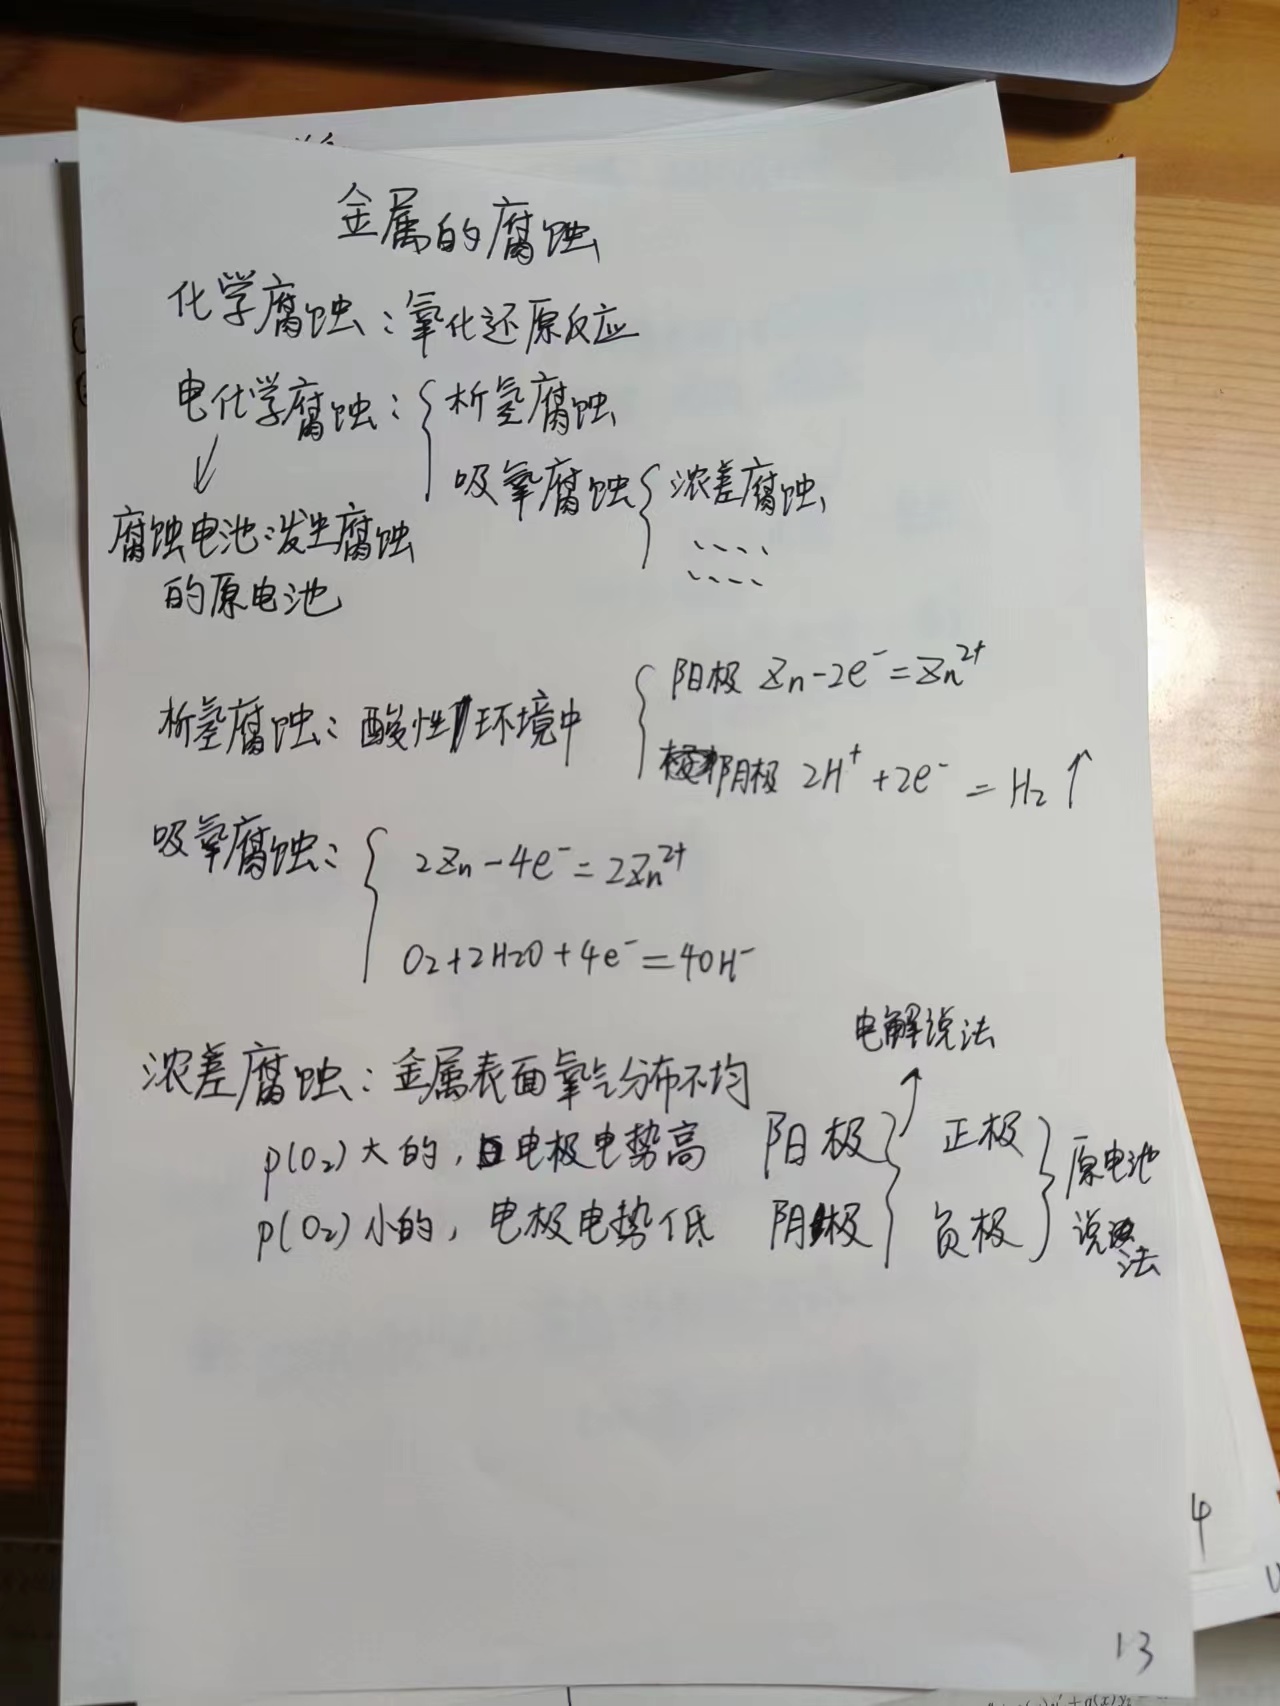 金属的腐蚀
化学腐蚀：氧化还原反应
电化学腐蚀：{析氢腐蚀
吸氧腐蚀{浓差腐蚀、
……
腐蚀电池：发生腐蚀
的原电池
析氢腐蚀：酸性环境中
{阳极 Zn-2e⁻=Zn²⁺
阴极 2H⁺+2e⁻=H₂↑
吸氧腐蚀：{2Zn-4e⁻=2Zn²⁺
O₂+2H₂O+4e⁻=4OH⁻
电解说法
浓差腐蚀：金属表面氧气分布不均
p(O₂)大的，电极电势高 阳极 正极
p(O₂)小的，电极电势低 阴极 负极
原电池
说法
4
13